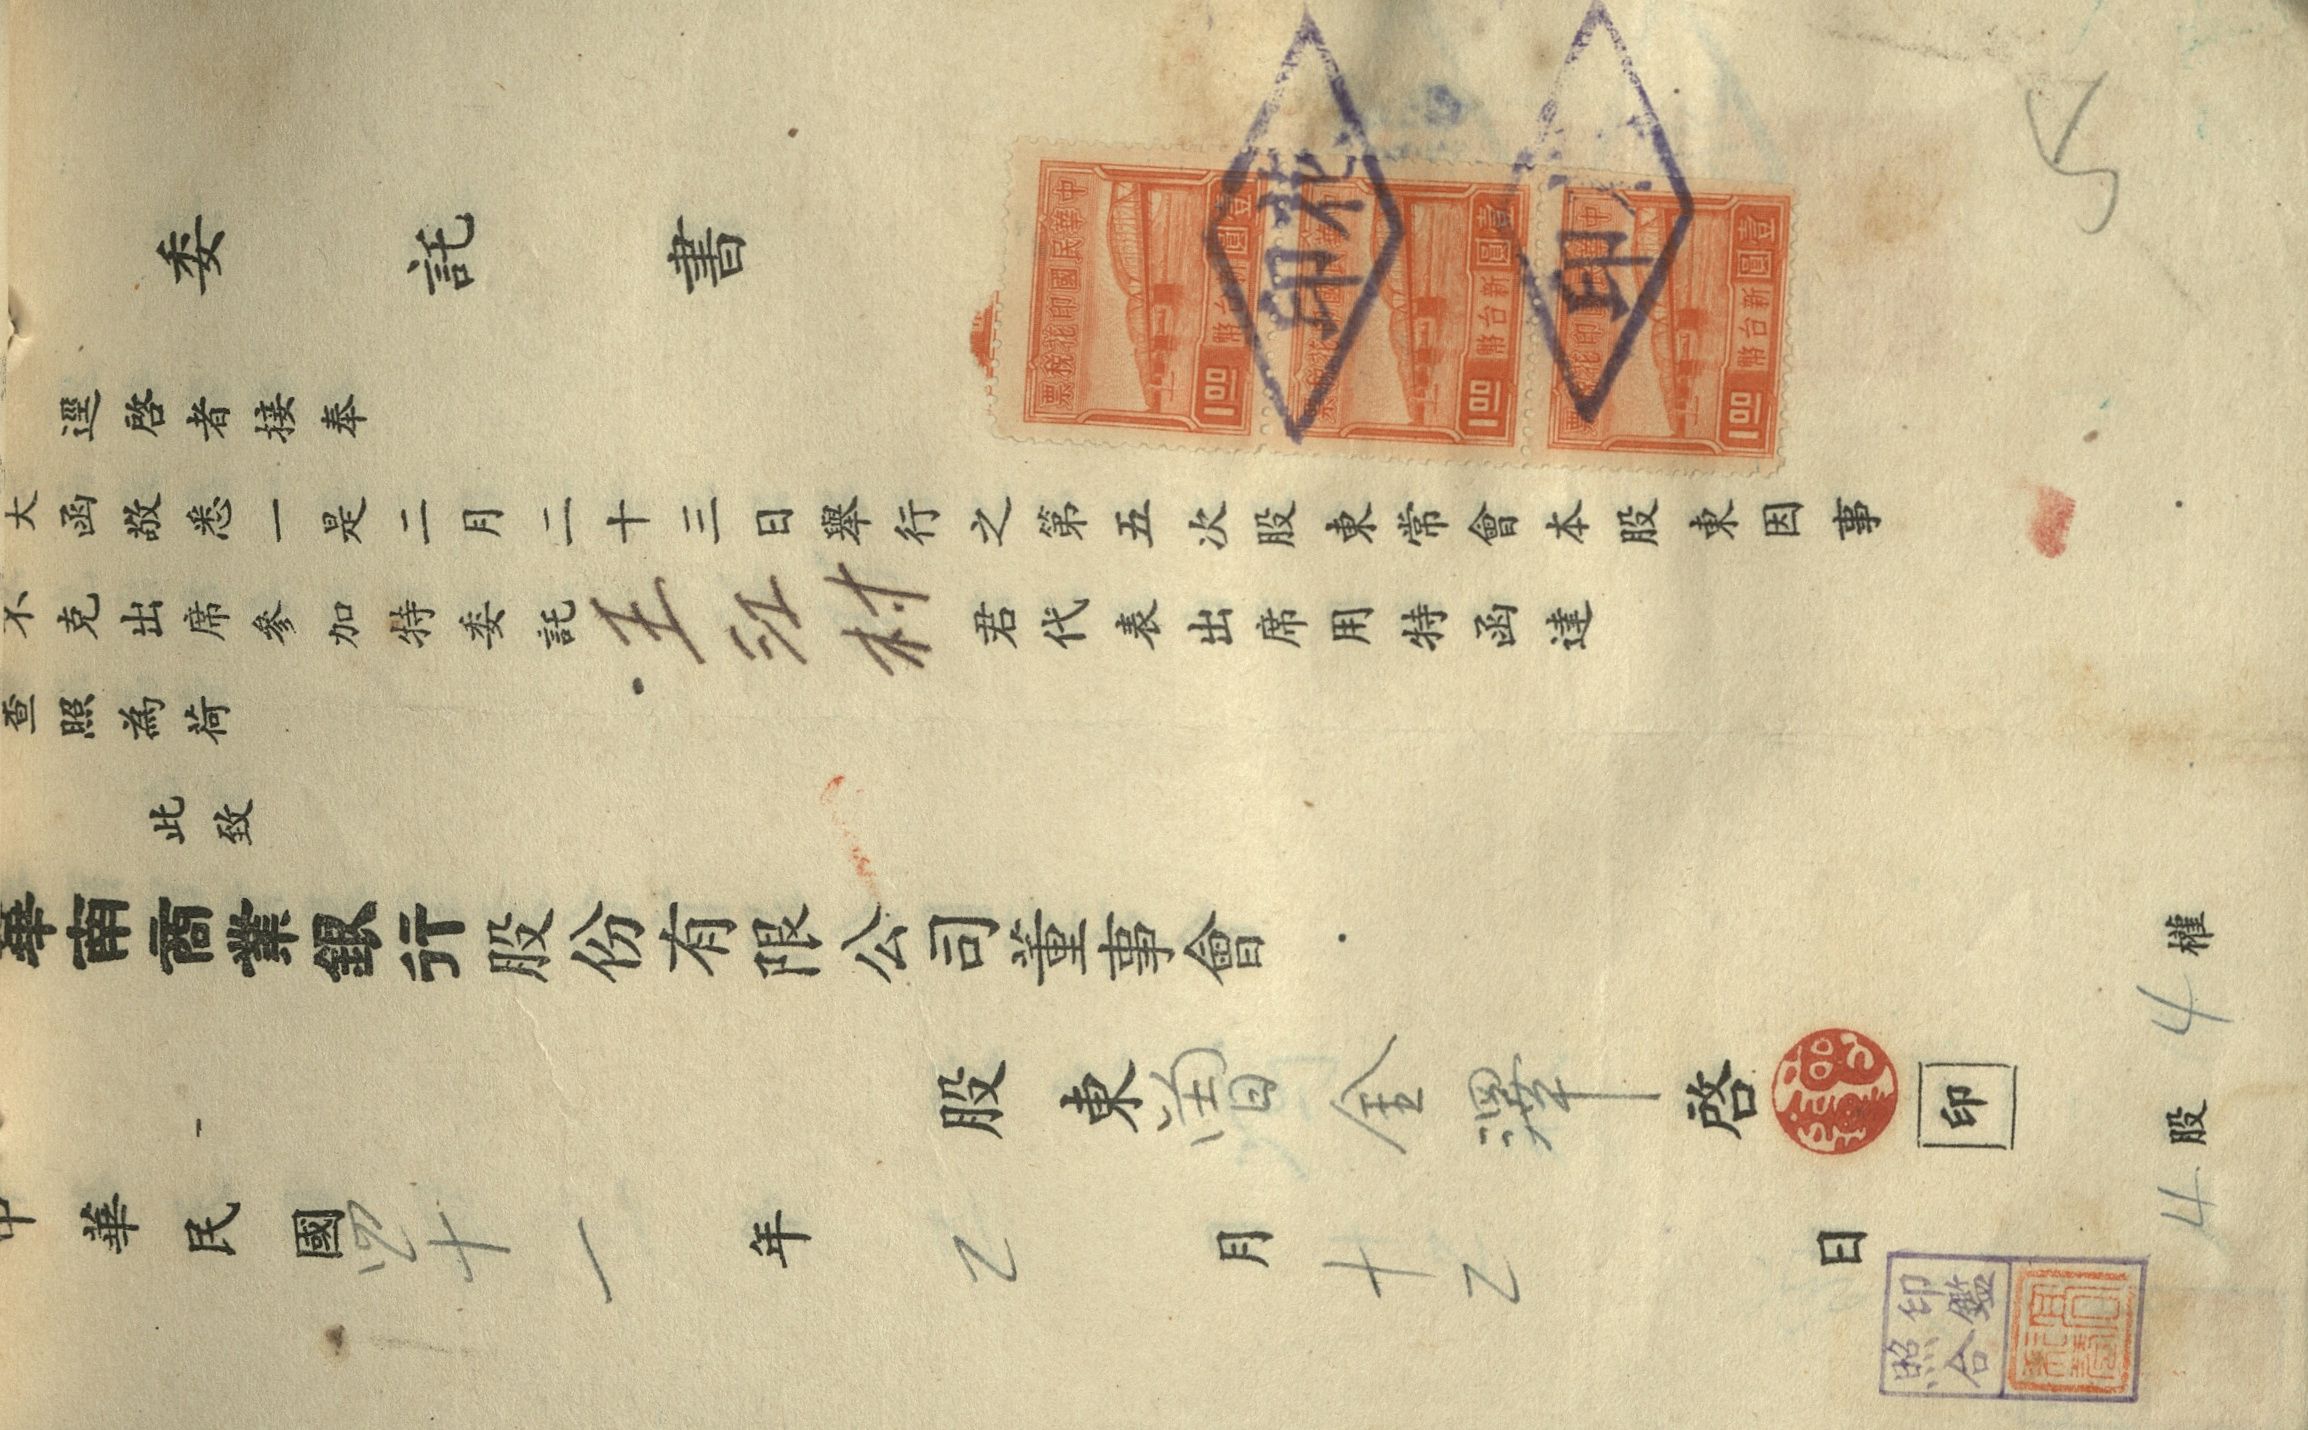 委託書
逕啓者接奉
大函敬悉一是二月二十三日舉行之第五次股東常會本股東因事
不克出席參加特委託王江村君代表出席用特函達
查照為荷
此致
華南商業銀行股份有限公司董事會
股東 金澤 啓 印
中華民國四十一年乙月十乙日
4股 4權
中華民國印花稅票
壹圓 新台幣
1.00
壹圓 新台幣
1.00
壹圓 新台幣
1.00
印花
印
印鑑
照合
5